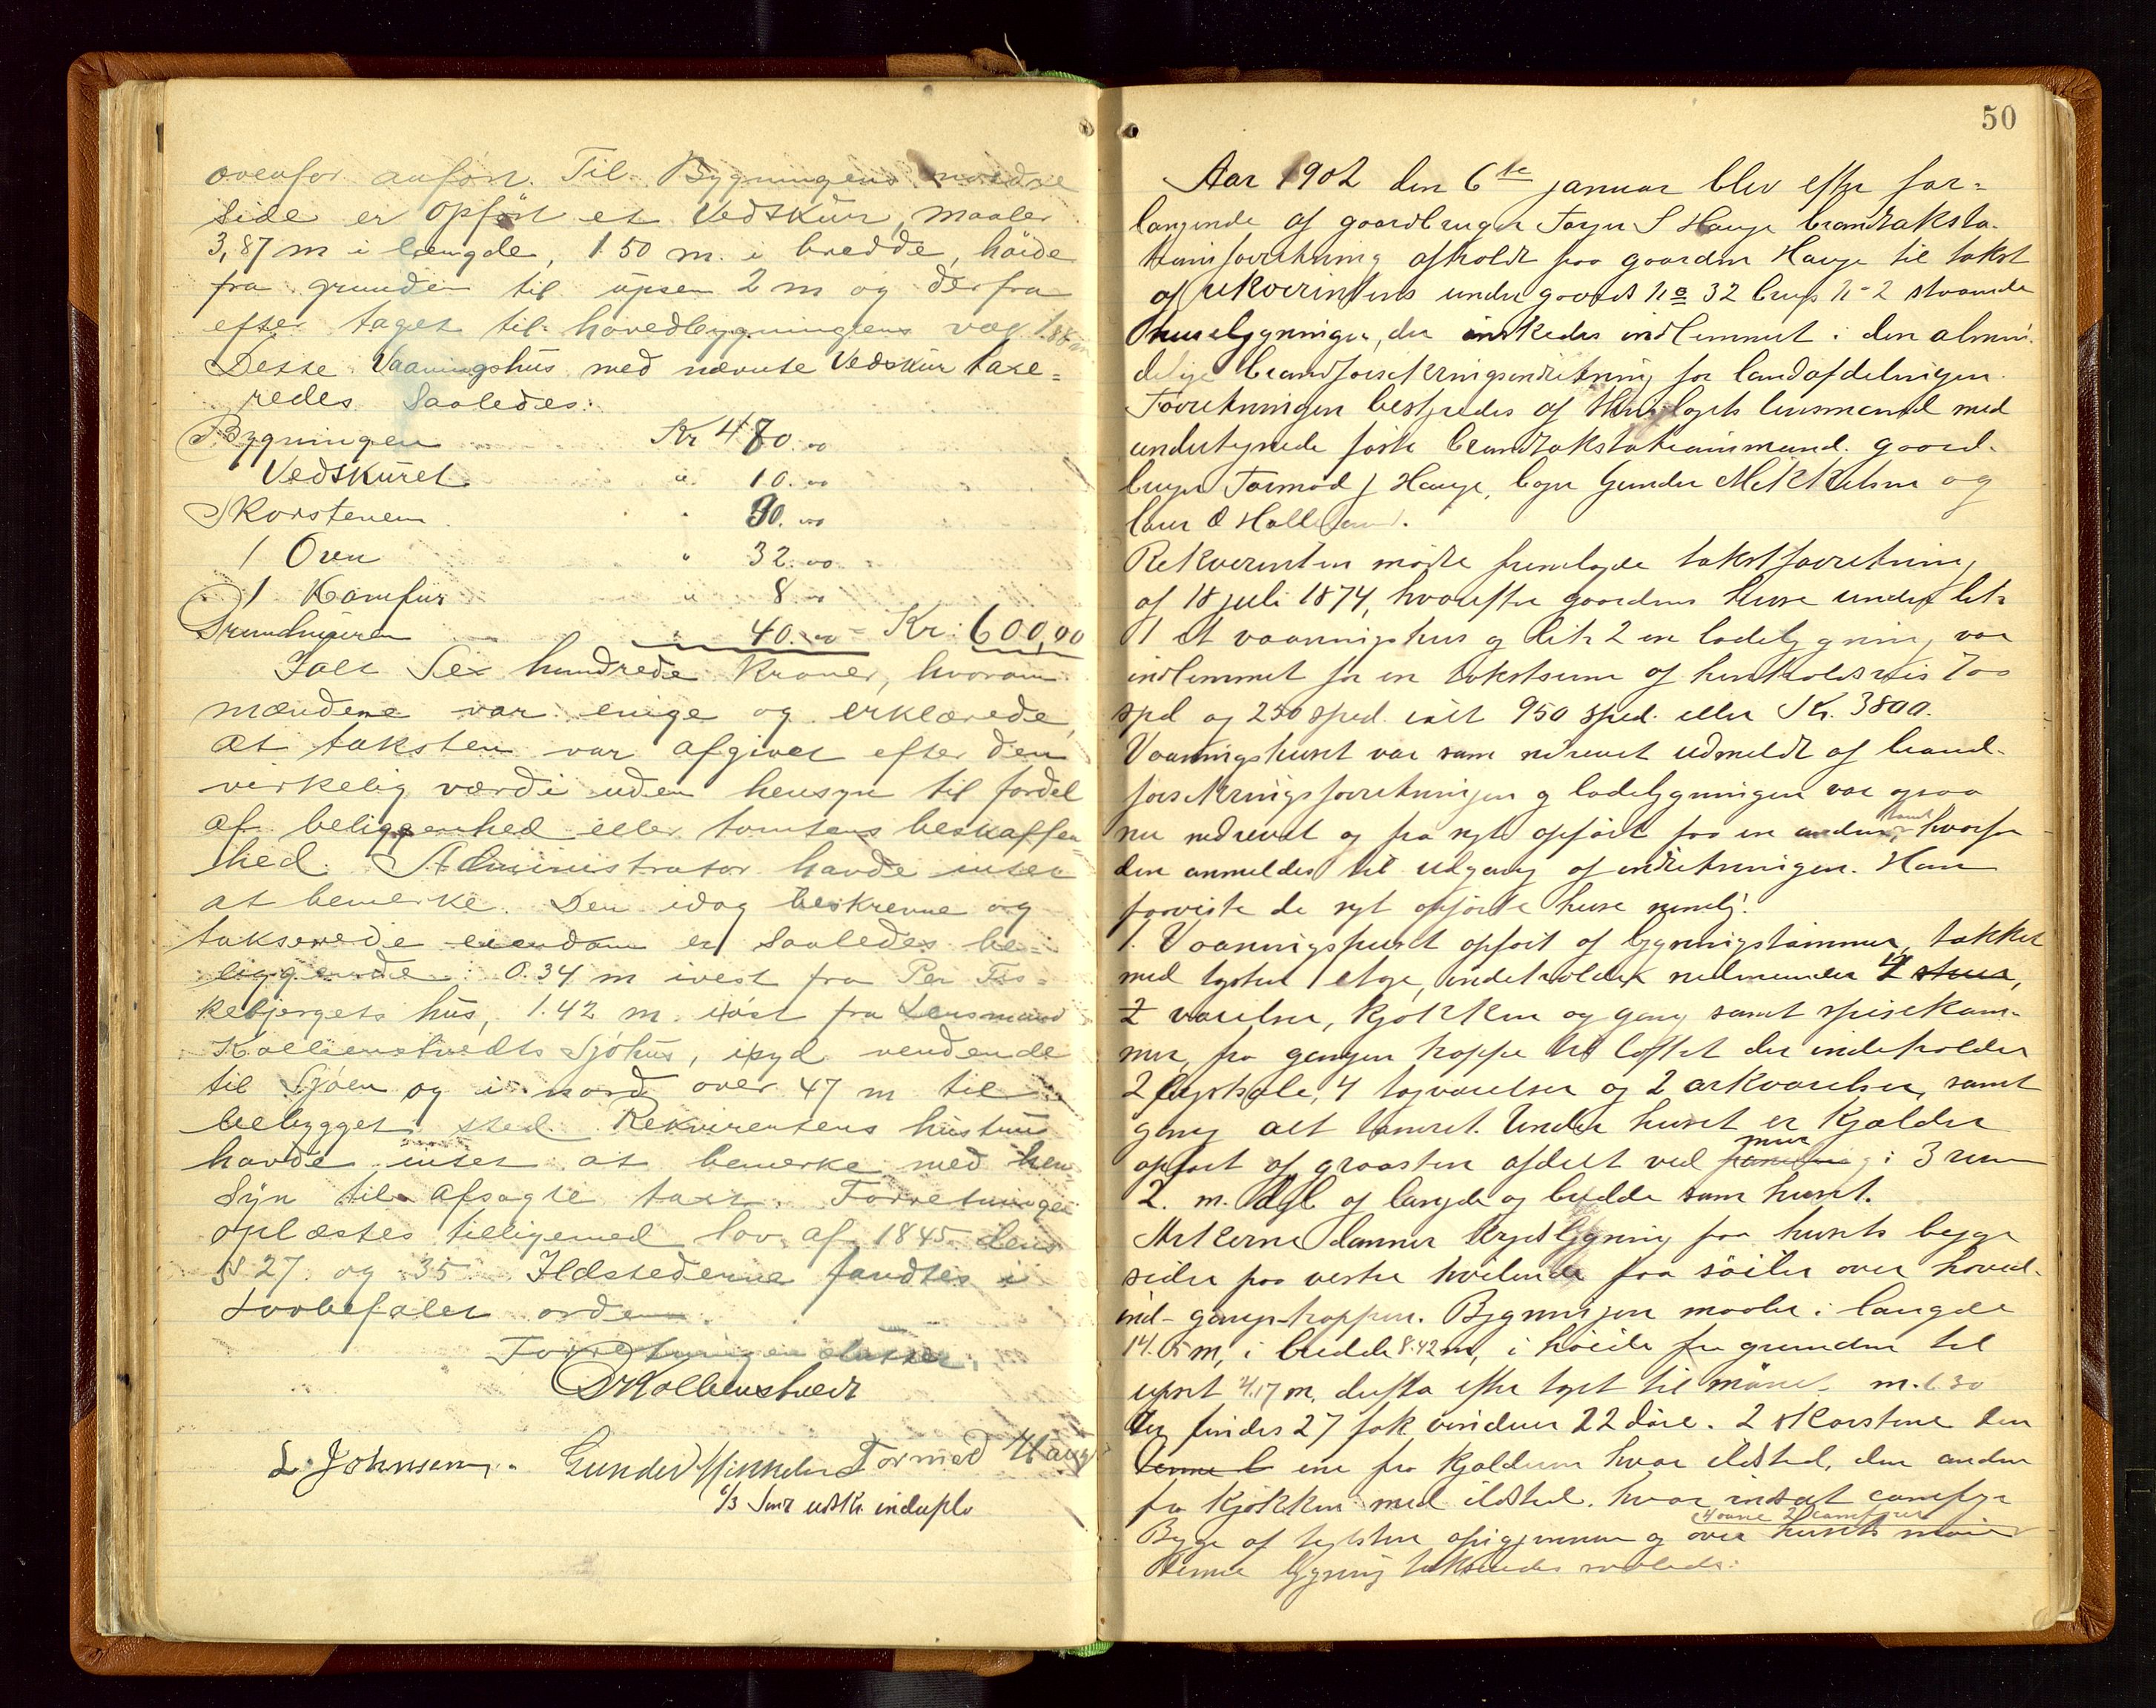 ovenfor anført. Til Bygningens nordre
side er opført et Vedskur, maaler
3,87 m i længde, 1.50 m. i bredde, høide
fra grunden til upsen 2 m og derfra
efter taget til hovedbygningens væg 1.88 m
Dette Vaaningshus med nævnte Vedskur taxe=
redes saaledes:
Bygningen Kr 480.00
Vedskuret " 10.00
Skorstenen " 30.00
1 Oven " 32.00
1 Komfur " 8.00
Grundmuren " 40.00 = Kr: 600,00
Ialt Sex hundrede Kroner, hvorom
mændene var enige og erklærede,
at taksten var afgivet efter den
virkelig værdi uden hensyn til fordel
af beliggenhed eller tomtens beskaffen=
hed. Administrator havde intet
at bemerke. Den idag beskrevne og
takserede eiendom er saaledes be=
liggende: 0.34 m ivest fra Per Fis=
kebjergets hus, 1.42 m. iøst fra Lensmand
Kollenstvedts Sjøhus, isyd vendende
til Sjøen og i nord over 47 m til
bebygget sted. Rekvirentens hustru
havde intet at bemerke med hen
syn til afsagte taxt. Forretningen
oplæstes tilligemed lov af 1845 dens
§§ 27 og 35. Ildstederne fandtes i
lovbefalet orden.
Forretningen sluttet,
Kollenstvedt
L. Johnsen. Gunder Mikkelsen Tormod Hauge
6/3 Sendt udskr. induplo
50
Aar 1902 den 6te januar blev efter for=
langende af gaardbruger Torger S Hauge brandtaksta=
tionsforretning afholdt paa gaarden Hauge til takst
af rekvirentens under gaards No 32 brugs No 2 staaende
husebygninger, der ønskedes indlemmet i den almin
delige brandforsikringsindretning for landafdelingen.
Forretningen bestyredes af lensmand med
undertegnede faste brandtakstationsmænd gaard=
bruger Tormod J Hauge, Gunder Mikkelsen og
Lars O
Rekvirenten mødte fremlagde takstforretning
af 18 juli 1874, hvorefter gaardens huse under litr
1 et vaaningshus og litr 2 en ladebygning, var
indlemmet for en takstsum af henholdsvis 700
spd og 250 sped. ialt 950 sped. eller Kr. 3800.
Vaaningshuset var som nedrevet udmeldt af brand=
forsikringsforretningen og ladebygningen var ogsaa
nu nedrevet og fra nyt opført paa en anden tomt hvorfor
den anmeldes til udgang af indretningen. Han
paaviste de nyt opførte huse nemlig:
1. Vaaningshuset opført af bygningstømmer, takket
med tagsten 1 etage, indeholder nedenunder 4 stuer,
2 værelser, kjøkken og gang samt spisekam=
mer fra gangen trappe til loftet der indeholder
2 , 4 tagværelser og 2 arkværelser, samt
gang alt tømret. Under huset er kjælder
opført af graasten afdelt ved mur i 3 rum
2. m. dyb af længde og bredde som huset.
Arkerne danner krydsbygning paa husets begge
sider paa vestre hvilende paa søiler over hoved=
ind-gangs-trappen. Bygningen maaler i længde
14.05 m, i bredde 8.42 m, i høide fra grunden til
upset 4.17 m, derfra efter taget til mønet m.
Der findes 27 fak vinduer 22 døre. 2 skorstene den
ene fra kjælderen hvor ildsted, den anden
fra kjøkken med ildsted. hvor indsat comfyr
4 ovne 2 comfurer
Begge af tegelsten opigjennem og over husets
denne bygning takseredes saaledes: